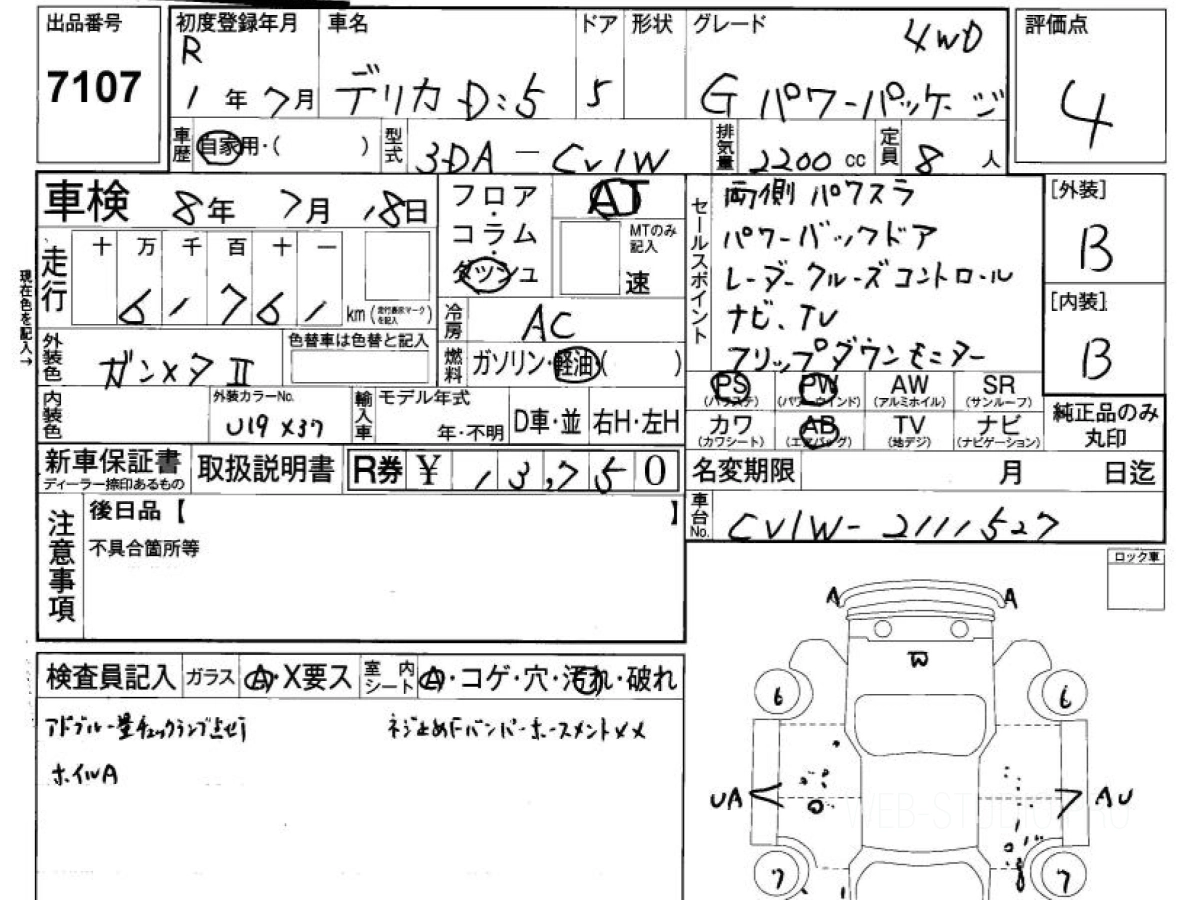 出品番号
7107
初度登録年月
R
1年7月
車名
デリカD:5
ドア
5
形状
グレード
4WD
Gパワーパッケージ
評価点
4
車歴
自家用・( )
型式
3DA-CV1W
排気量
2200cc
定員
8人
車検
8年 7月 18日
フロア
・
コラム
・
ダッシュ
AT
MTのみ
記入
速
セールスポイント
両側パワスラ
パワーバックドア
レーダークルーズコントロール
ナビ、TV
フリップダウンモニター
[外装]
B
[内装]
B
現在色を記入→
走行
十 万 千 百 十 一
6 1, 7 6 1
km(走行表示マークを記入)
冷房
AC
燃料
ガソリン・軽油・( )
外装色
ガンメタⅡ
色替車は色替と記入
内装色
外装カラーNo.
U19 X37
輸入車
モデル年式
年・不明
D車・並
右H・左H
PS
(パワステ)
PW
(パワーウインド)
AW
(アルミホイル)
SR
(サンルーフ)
カワ
(カワシート)
AB
(エアバッグ)
TV
(地デジ)
ナビ
(ナビゲーション)
純正品のみ
丸印
新車保証書
ディーラー捺印あるもの
取扱説明書
R券 ¥ 13,750
名変期限 月 日迄
車台No.
CV1W-2111527
注意事項
後日品【 】
不具合箇所等
ロック車
検査員記入
ガラス
A・X要ス
室内シート
A・コゲ・穴・汚れ・破れ
アドブルー量チェックランプ点せず
ネジ止めFバンパーホースメントメメ
ホイルA
A A
W
6 6
UA AU
WEB-STUDIO
7 7